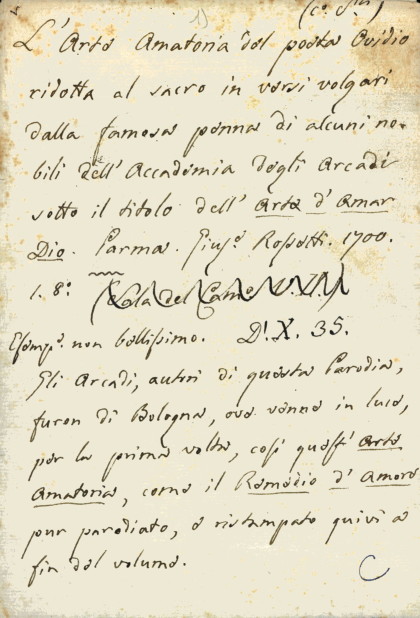 1)
L'Arte Amatoria del poeta Ovidio
ridotta al sacro in versi volgari
dalla famosa penna di alcuni no-
bili dell'Accademia degli Arcadi
sotto il titolo dell'Arte d'Amar
Dio. Parma. Gius.e Rossetti. 1700.
1. 8.o
Esemp.e non bellissimo. D.I.X.35.
Gli Arcadi, autori di questa Parodia,
furon di Bologna, ove venne in luce,
per la prima volta, così quest'Arte
Amatoria, come il Remedio d'Amore
pur parodiato, e ristampato quivi a
fin del volume.
C